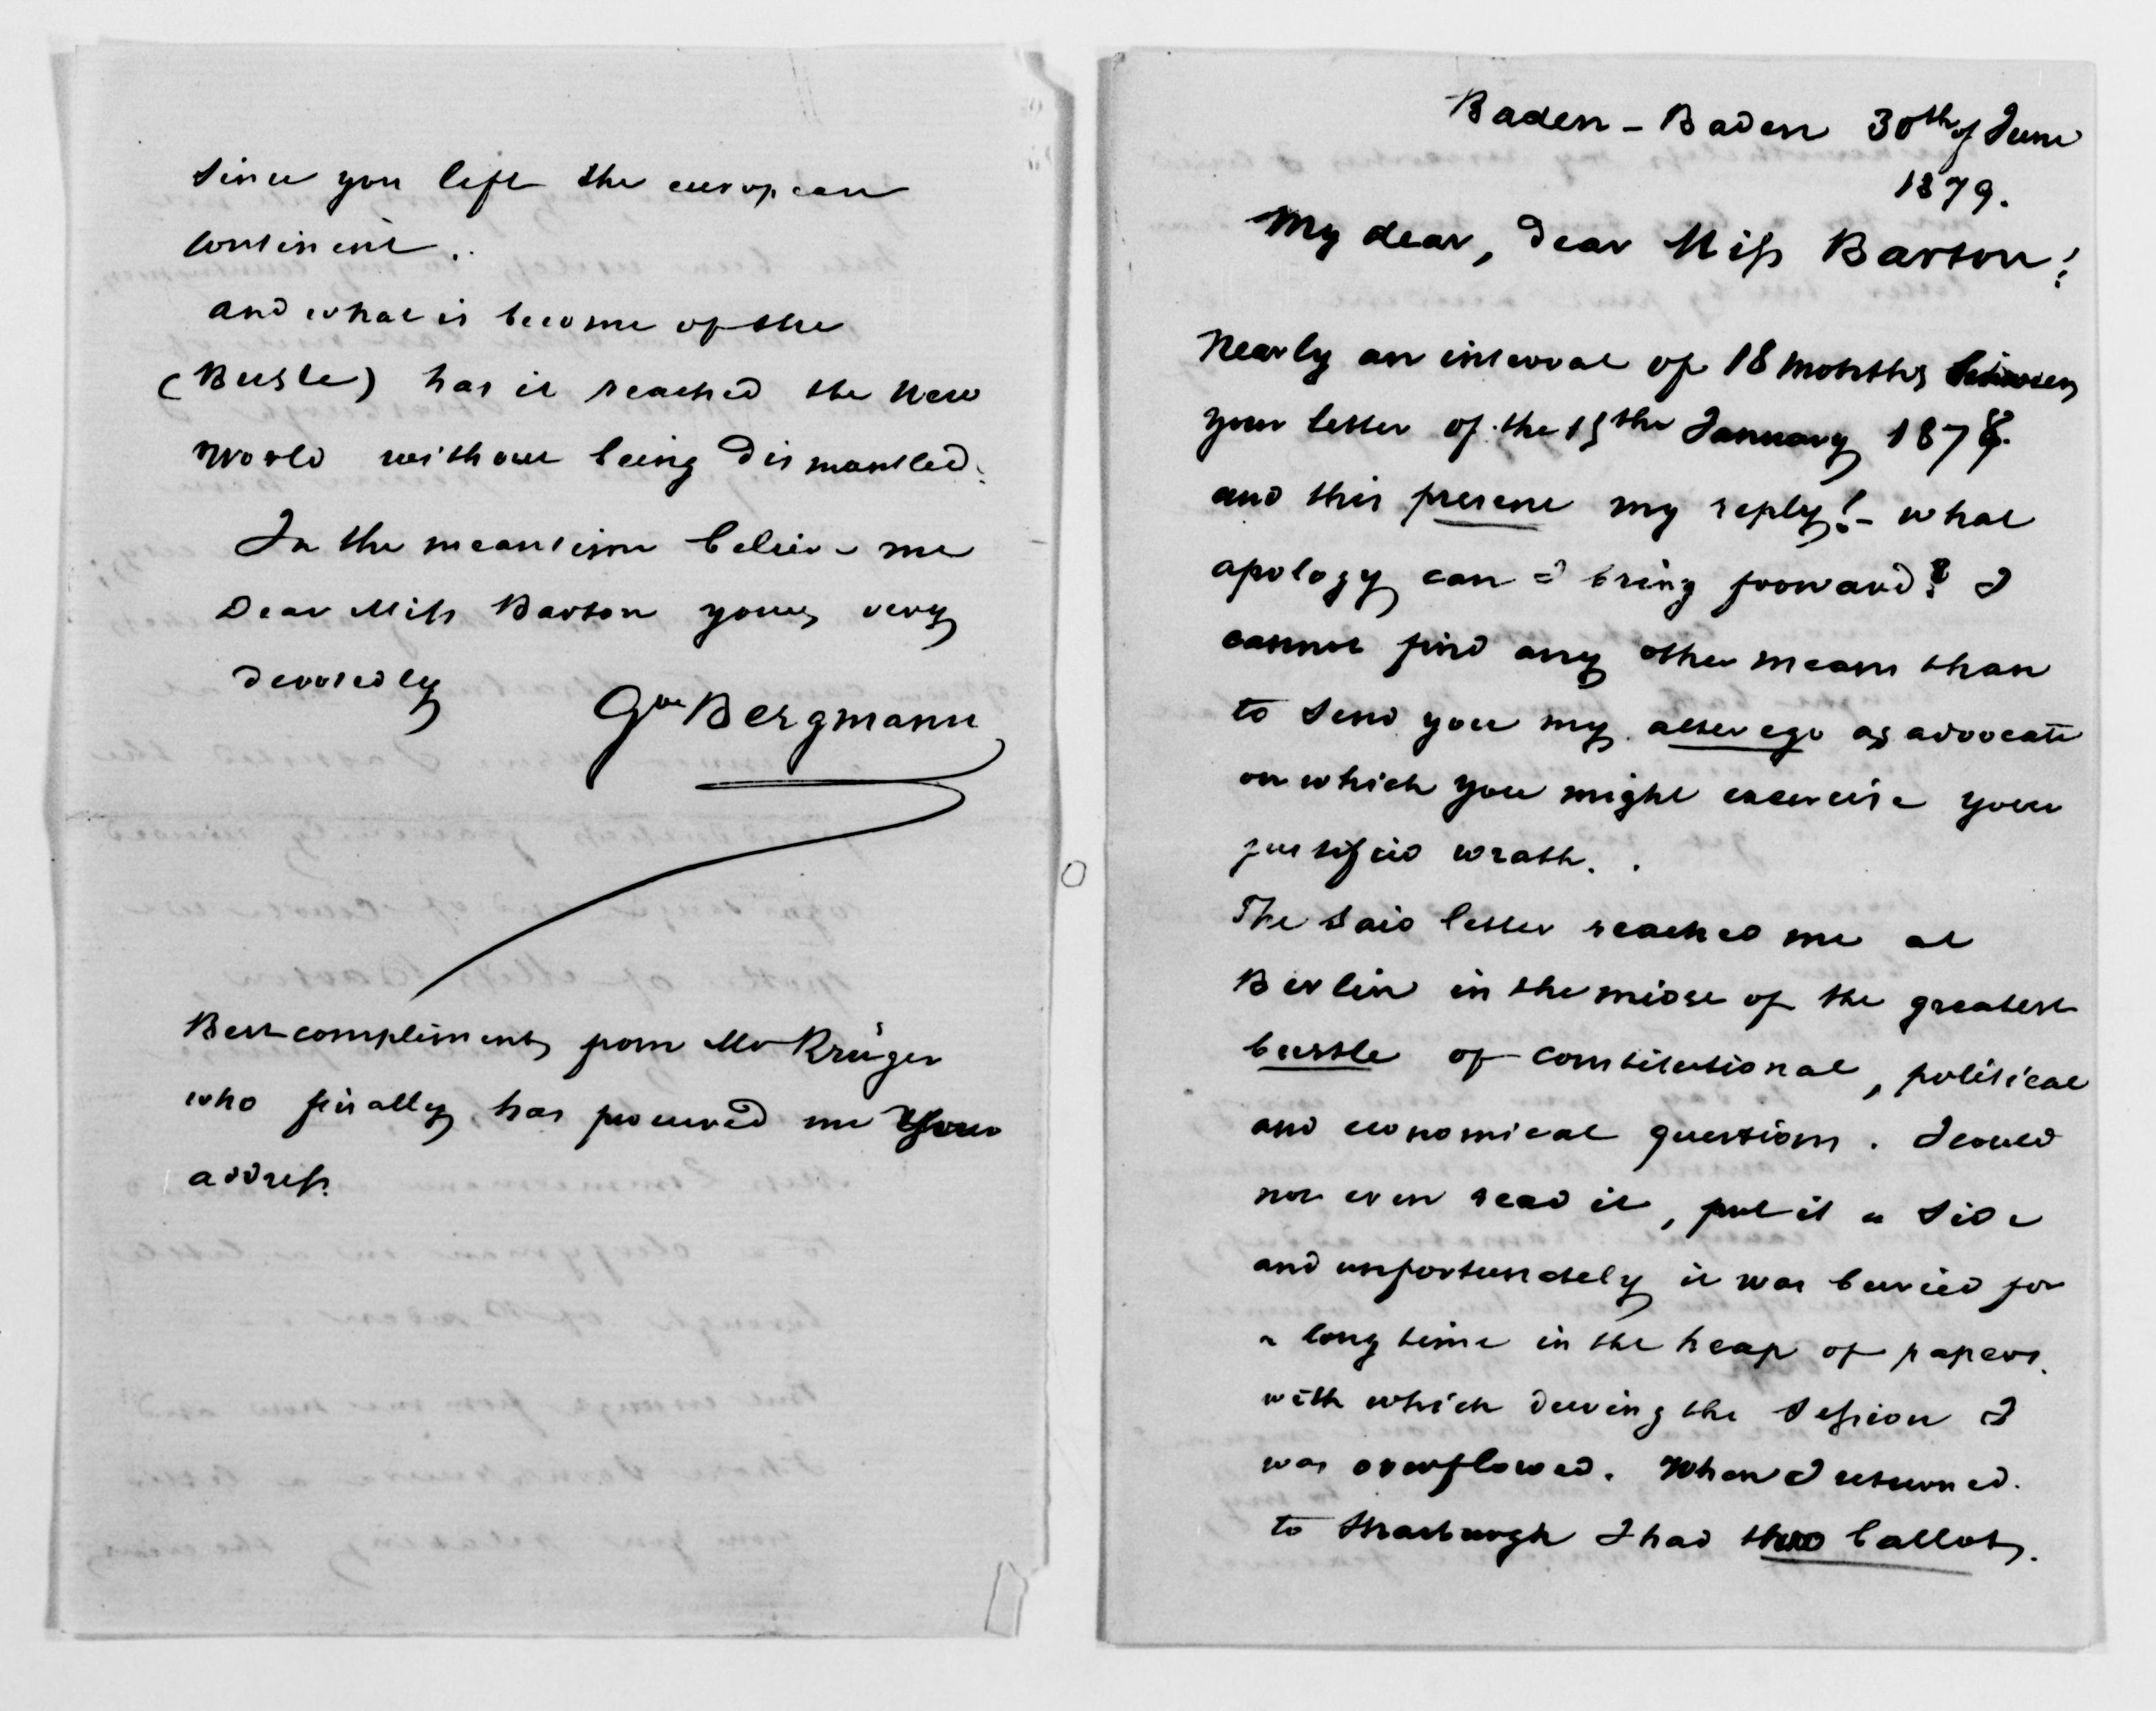 since you left the european
continent.
and what is become of the
(Buste) has it reached the New
World without being dismantled.
In the meantime believe me
Dear Miss Barton yours very
devotedly
Gve Bergmann
Best compliments from Mr Krüger
who finally has procured me your
address.
Baden-Baden 30th of June
1879.
My dear, dear Miss Barton!
Nearly an interval of 18 months between
your letter of the 15the January 1878.
and this present my reply! - what
apology can I bring forward? I
cannot find any other means than
to send you my alter ego as advocate
on which you might exercise your
justified wrath.
The said letter reached me at
Berlin in the midst of the greatest
bustle of constitutional, political
and economical questions. I could
not even read it, put it a side
and unfortunately it was buried for
a long time in the heap of papers
with which during the session I
was overflowed. When I returned.
to Strasburgh I had two ballots.